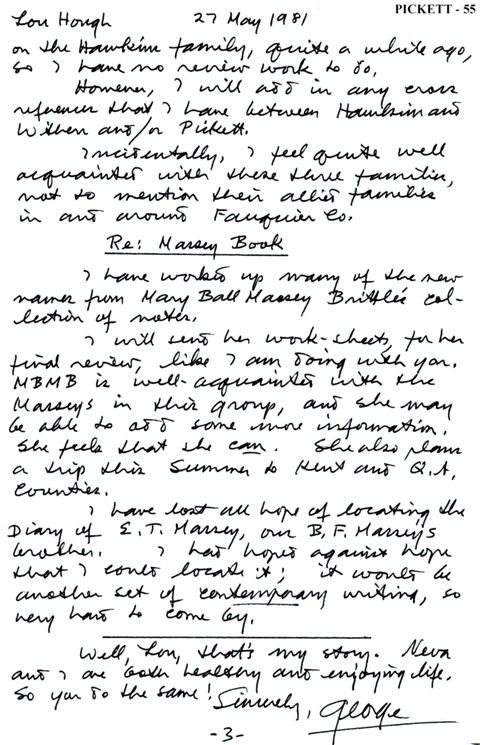 PICKETT - 55
Lou Hough 27 May 1981
on the Hawkins family, quite a while ago,
so I have no review work to do.
However, I will add in any cross
references that I have between Hawkins and
Withers and/or Pickett.
Incidentally, I feel quite well
acquainted with these three families,
not to mention their allied families
in and around Fauquier Co.
Re: Massey Book
I have worked up many of the new
names from Mary Ball Massey Brittle's col-
lection of notes.
I will send her work-sheets, for her
final review, like I am doing with you.
MBMB is well-acquainted with the
Masseys in this group, and she may
be able to add some more information.
She feels that she can. She also plans
a trip this Summer to Kent and Q.A.
Counties.
I have lost all hope of locating the
Diary of E. T. Massey, our B. F. Massey's
brother. I had hoped against hope
that I could locate it; it would be
another set of contemporary writing, so
very hard to come by.
Well, Lou, that's my story. Neva
and I are both healthy and enjoying life.
So you do the same!
Sincerely, George
-3-